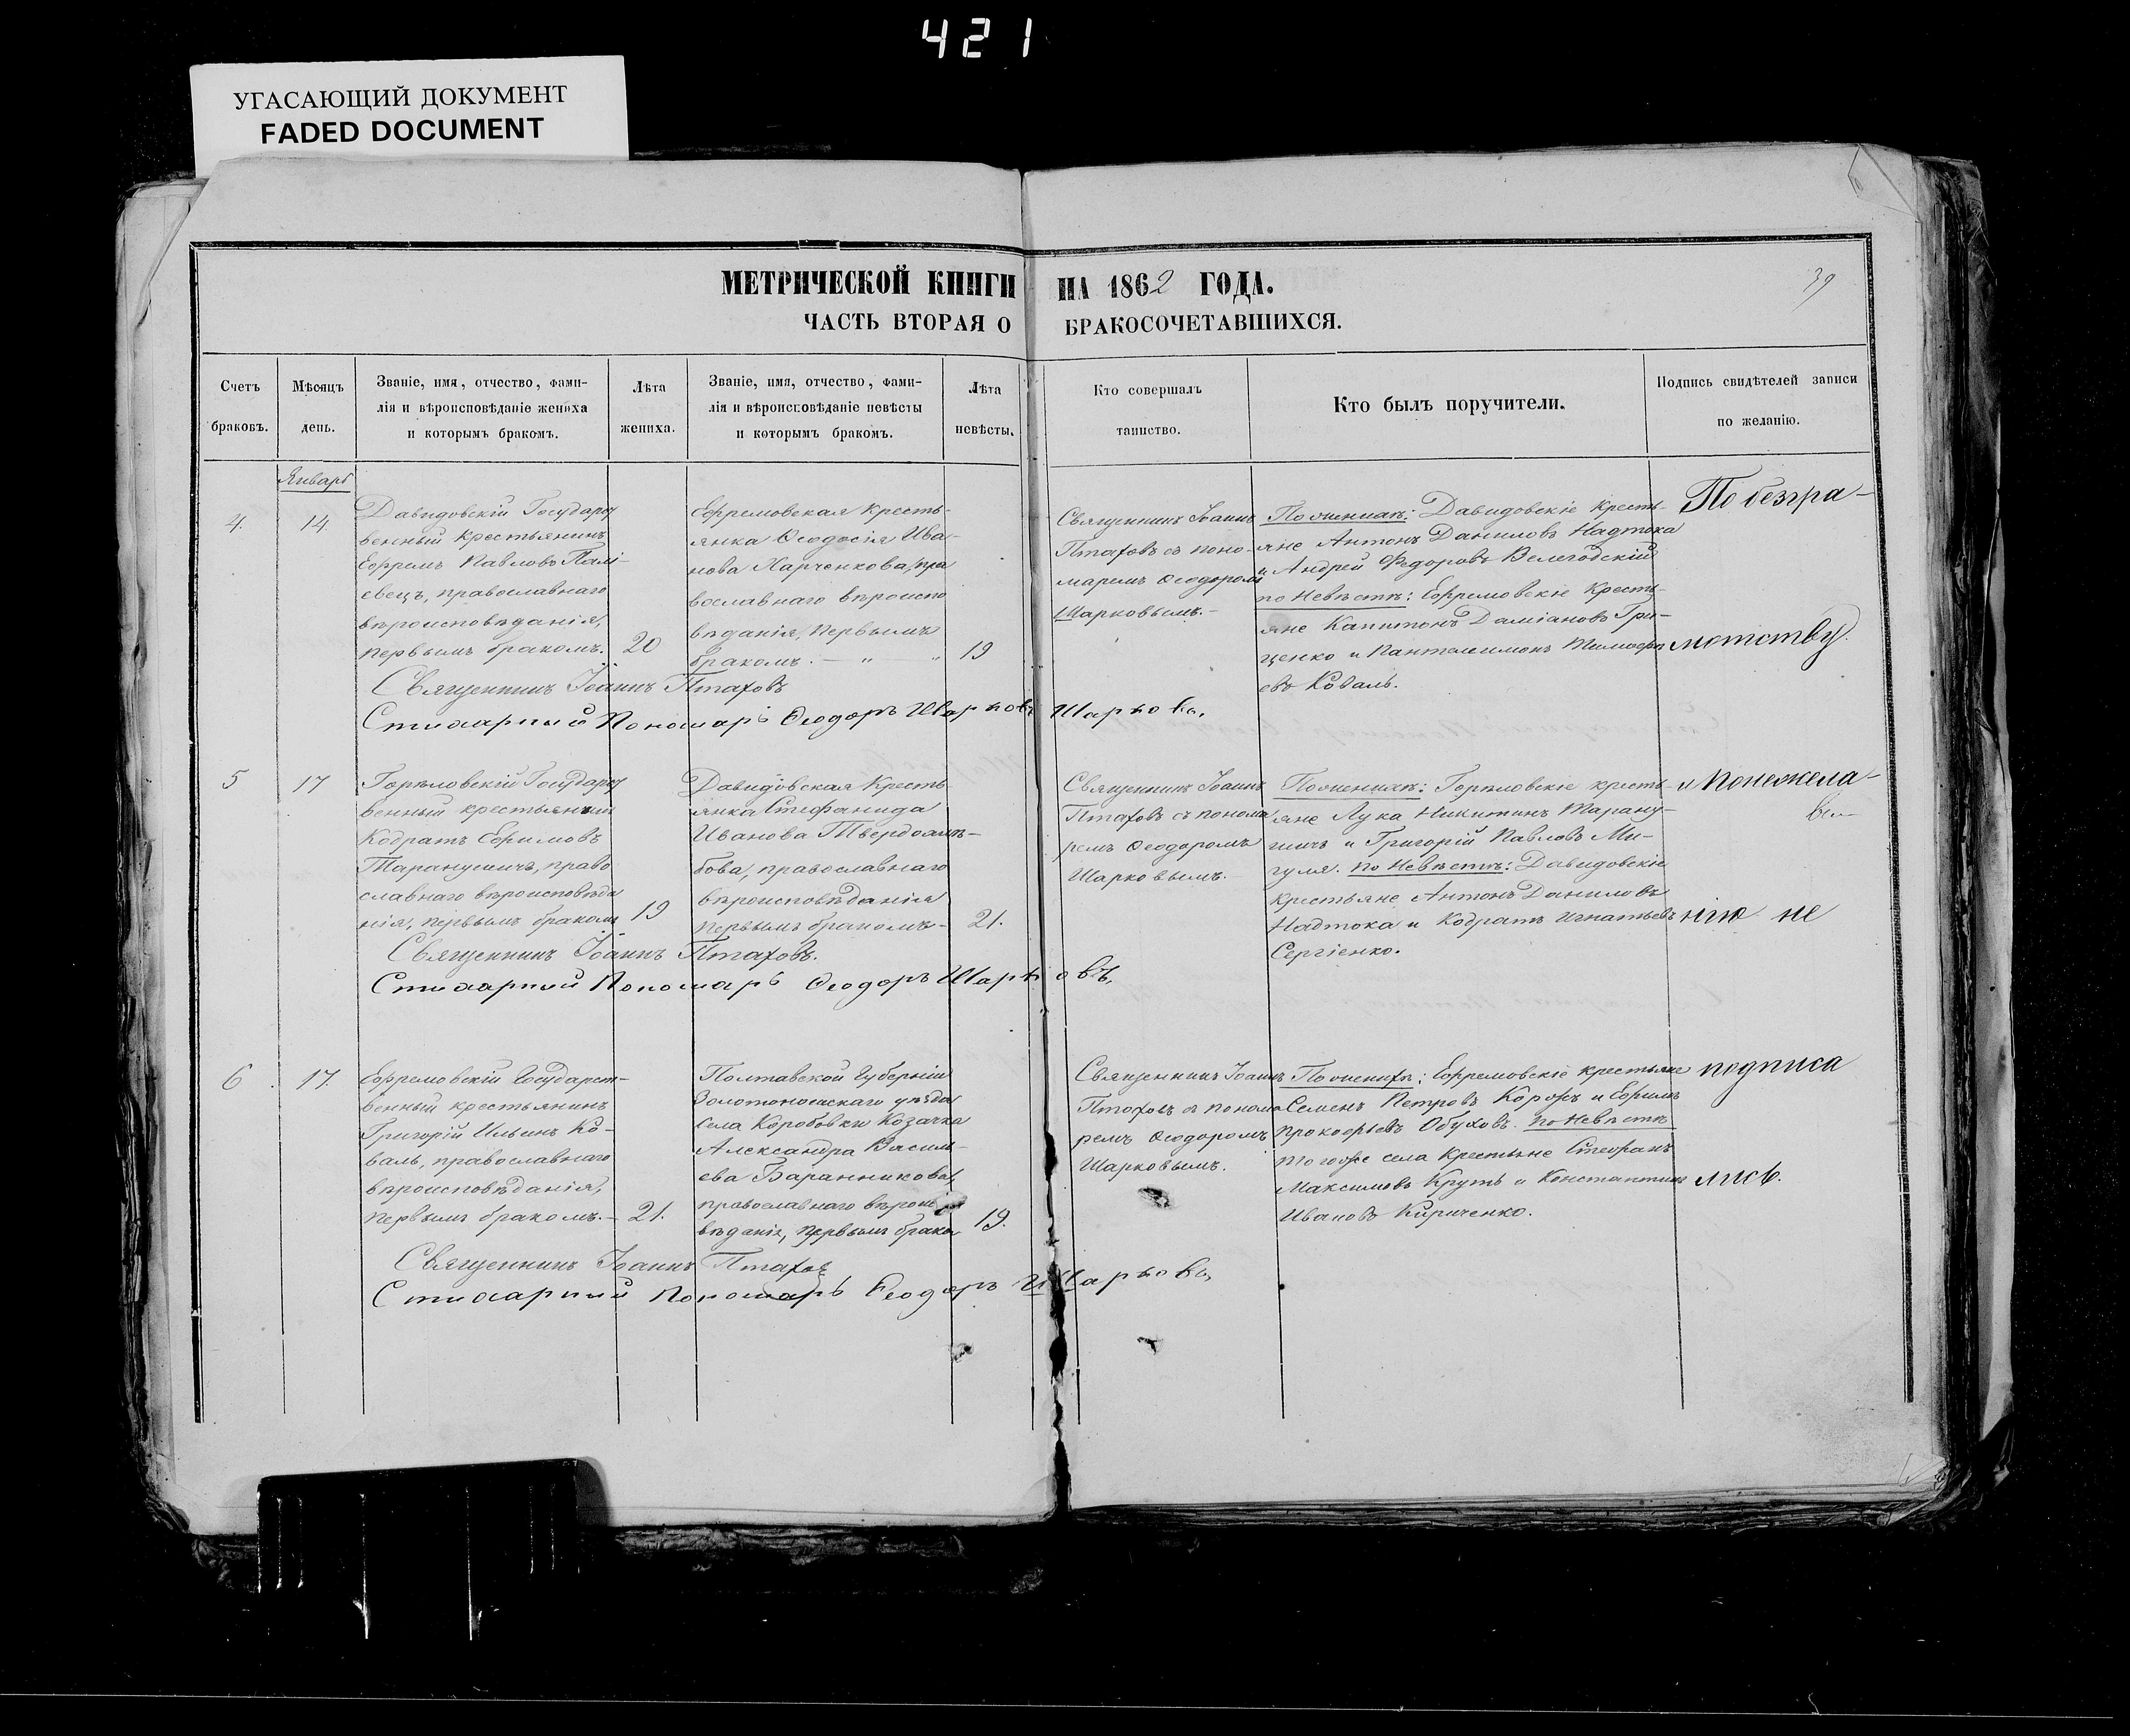 421
УГАСАЮЩИЙ ДОКУМЕНТ
FADED DOCUMENT
МЕТРИЧЕСКОЙ КНИГИ НА 1862 ГОДА.
39
ЧАСТЬ ВТОРАЯ О БРАКОСОЧЕТАВШИХСЯ.
Счетъ
браковъ.
Мѣсяцъ
день.
Званіе, имя, отчество, фами-
лія и вѣроисповѣданіе жениха
и которымъ бракомъ.
Лѣта
жениха.
Званіе, имя, отчество, фами-
лія и вѣроисповѣданіе невѣсты
и которымъ бракомъ.
Лѣта
невѣсты.
Кто совершалъ
таинство.
Кто былъ поручители.
Подпись свидѣтелей записи
по желанію.
Январь
4.
14.
Давидовскій Государст
венный крестьянинъ
Ефремъ Павловъ
православнаго
вѣроисповѣданія,
первымъ бракомъ.
20
Ефремовская кресть-
янка Ѳеодосія Ива-
нова Харченкова, пра
вославнаго вѣроиспо
вѣданія, первымъ
бракомъ. — „ — „
19
Священникъ Іоаннъ
Птаховъ съ поно-
маремъ Ѳеодоромъ
Шарковымъ.-
По женихѣ: Давидовскіе кресть-
яне Антонъ Даниловъ Надтока
и Андрей Федоровъ Велегодскій
по Невѣстѣ: Ефремовскіе Кресть-
яне Капитонъ Даміановъ Гри-
ценко и Пантелеимонъ Тимофе
евъ Коваль.
По безгра-
мотству
Священникъ Іоаннъ Птаховъ
Стихарный Пономарь Ѳеодоръ Шарковъ Шарковъ.
5
17
Горѣловскій Государст
венный крестьянинъ
Кодратъ Ефимовъ
право
славнаго вѣроисповѣда
нія, первымъ бракомъ
19
Давидовская Кресть
янка Стефанида
Иванова Твердохлѣ-
бова, православнаго
вѣроисповѣданія
первымъ бракомъ-
21.
Священникъ Іоаннъ
Птаховъ съ понома
ремъ Ѳеодоромъ
Шарковымъ.
По женихѣ: Горѣловскіе кресть-
яне Лука Никитинъ
и Григорій Павловъ Ми-
гуля. по Невѣстѣ: Давидовскіе
крестьяне Антонъ Даниловъ
Надтока и Кодратъ Игнатьевъ
Сергіенко.
и Понежела-
нію не
Священникъ Іоаннъ Птаховъ.
Стихарный Пономарь Ѳеодоръ Шарковъ,
6
17.
Ефремовскій Государст-
венный крестьянинъ
Григорій Ильинъ Ко-
валь, православнаго
вѣроисповѣданія,
первымъ бракомъ.-
21.
Полтавской Губерніи
Золотоношскаго уѣзда
села Коробовки Козачка
Александра Василь-
ева Баранникова,
православнаго вѣроис
вѣданія, первымъ брако
19.
Священникъ Іоаннъ
Птаховъ съ понома
ремъ Ѳеодоромъ
Шарковымъ.
По женихѣ: Ефремовскіе крестьяне
Семенъ Петровъ Корожъ и Ефимъ
Прокофьевъ Обуховъ. по Невѣстѣ
того же села Крестьяне Стефанъ
Максимовъ Круть и Константинъ
Ивановъ Кириченко.
подписа
лись.
Священникъ Іоаннъ Птаховъ
Стихарный Пономарь Ѳеодоръ Шарковъ,